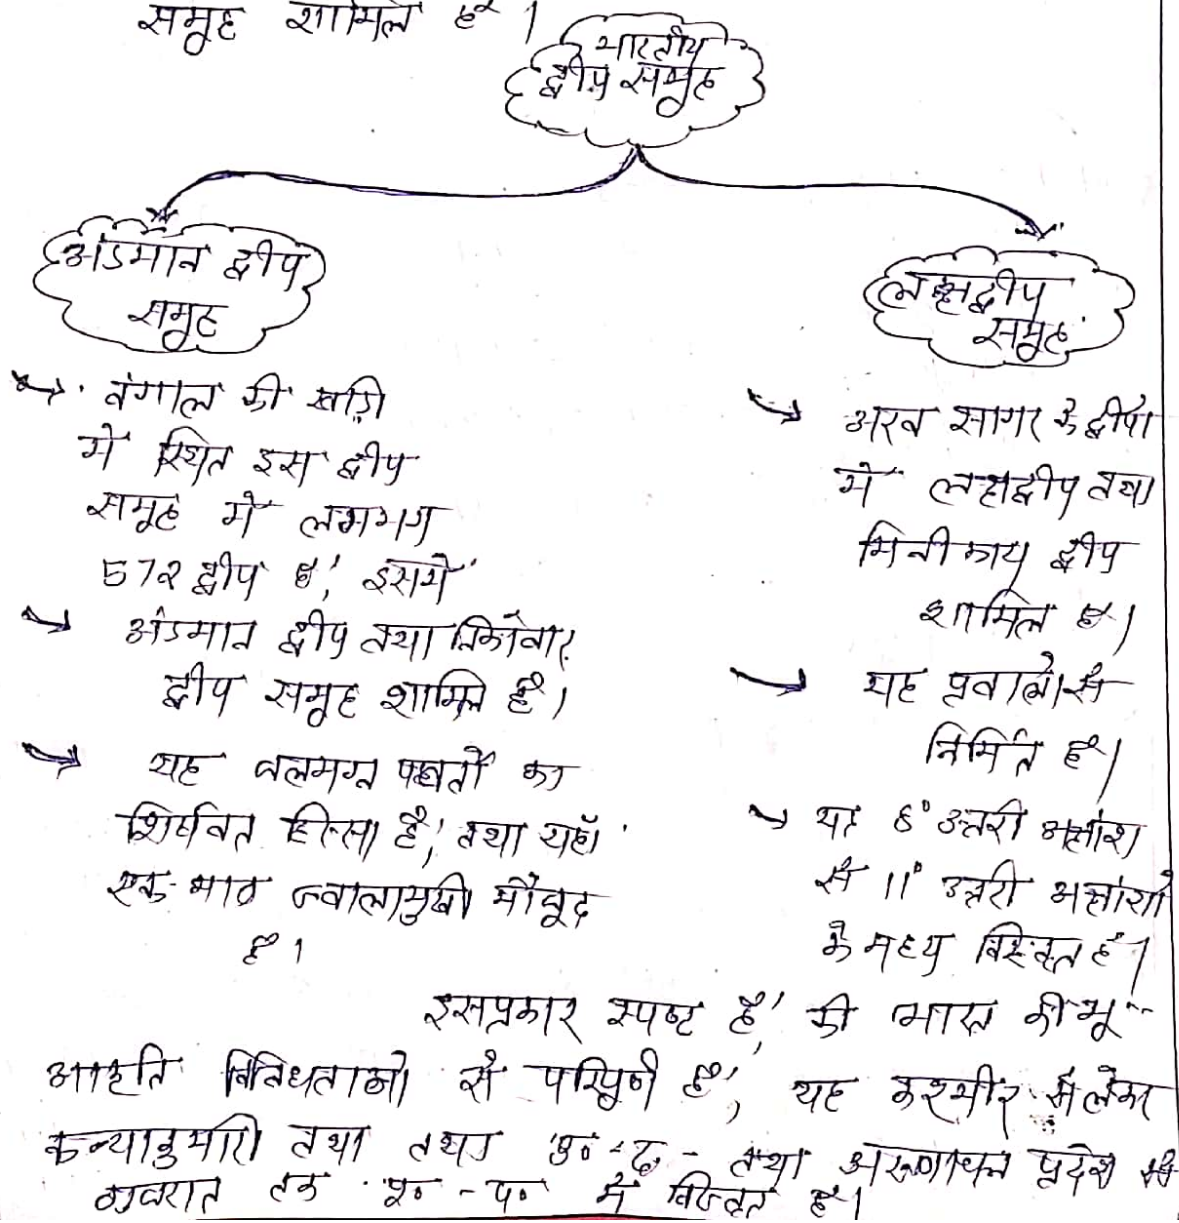 समूह शामिल हैं।
भारतीय
द्वीप समूह
अंडमान द्वीप
समूह
→ बंगाल की खाड़ी
में स्थित इस द्वीप
समूह में लगभग
572 द्वीप हैं, इसमें
→ अंडमान द्वीप तथा निकोबार
द्वीप समूह शामिल है।
→ यह जलमग्न पर्वतों का
शिर्षवत हिस्सा है, तथा यहाँ
एक मात्र ज्वालामुखी मौजूद
है।
लक्षद्वीप
समूह
→ अरब सागर के द्वीपों
में लक्षद्वीप तथा
मिनीकाय द्वीप
शामिल है।
→ यह प्रवालो से
निर्मित है।
→ यह 8° उत्तरी अक्षांश
से 11° उत्तरी अक्षांशो
के मध्य विस्तृत है।
इसप्रकार स्पष्ट है, की भारत की भू-
आकृति विविधताओ से परिपूर्ण है, यह कश्मीर से लेकर
कन्याकुमारी तथा तथा उ॰-द॰ तथा अरुणाचल प्रदेश से
गुजरात तक पू॰-प॰ में विस्तृत है।